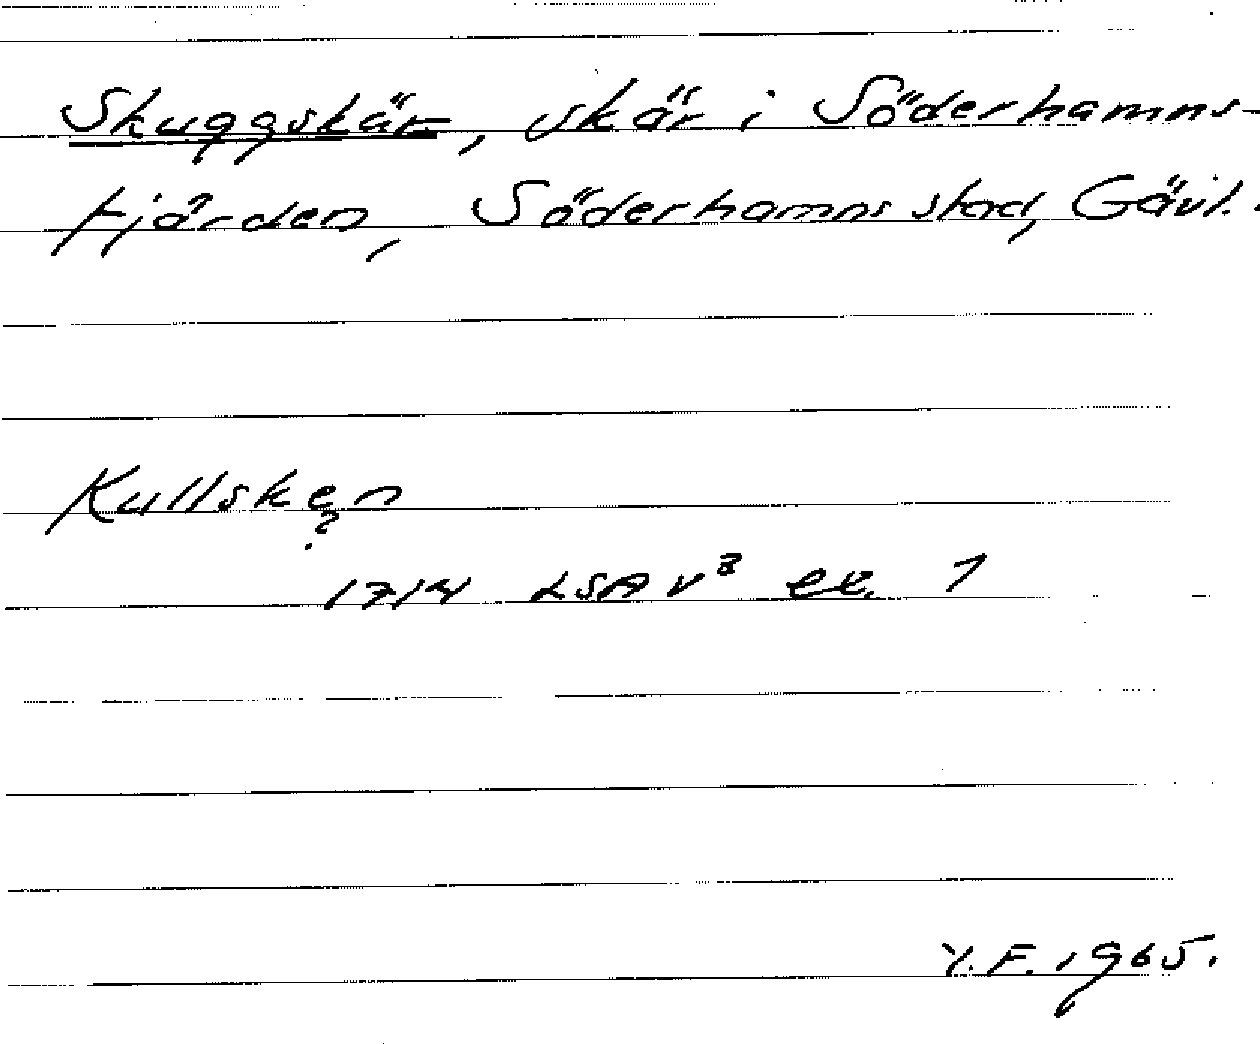 Skuggskär, skär i Söderhamns-
fjärden, Söderhamns stad, Gävl.
Kullsken
?
1714 LSA V³ ex. 1
Y.F. 1965.